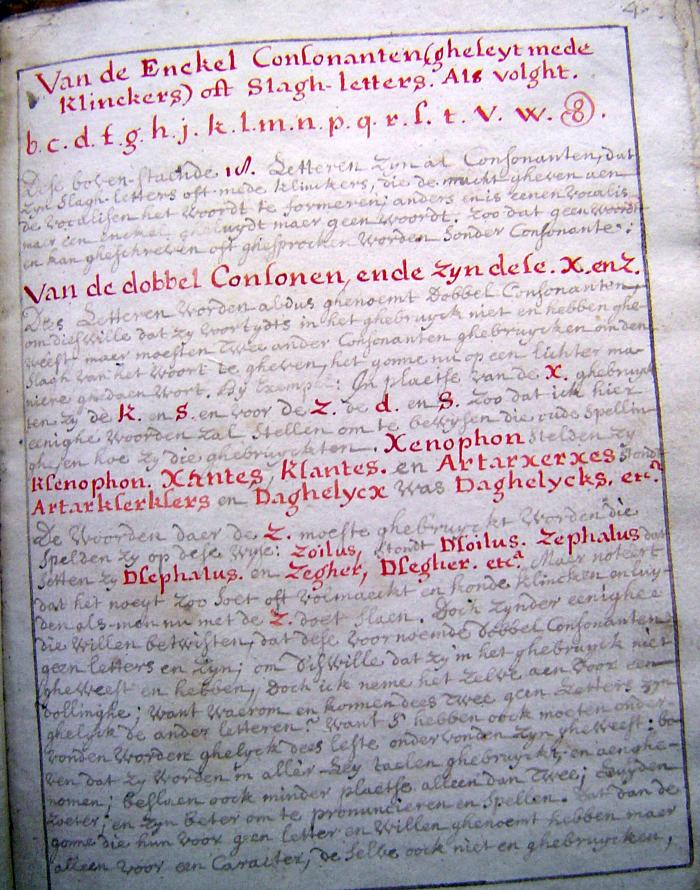 4.
Van de Enckel Consonanten (gheseyt mede
klinckers) oft Slagh-letters. Als volght.
b. c. d. f. g. h. j. k. l. m. n. p. q. r. s. t. v. w. 8.
Dese boven-staende 18. Letteren zyn al Consonanten, dat
zyn Slagh-letters oft mede klinckers, die de macht gheven aen
de vocalisen het woordt te formeren; anders en is eenen vocalis
maer een enckel gheluydt maer geen woordt. Zoo dat geen woordt
en kan gheschreven oft ghesprocken worden sonder Consonante:
Van de dobbel Consonen, ende zyn dese. X. en Z.
Dees Letteren worden aldus ghenoemt Dobbel Consonanten,
om dieswille dat zy voortydts in het ghebruyck niet en hebben ghe-
weest maer moesten twee ander Consonanten ghebruycken om den
slagh van het woort te gheven, het gonne nu op een lichter ma-
niere ghedaen wort. By Exempel: In plaetse van de X. ghebruyck
ten zy de k. en S. en voor de Z. de d. en S. Zoo dat ick hier
eenighe woorden zal stellen om te bewysen die oude spellin-
ghen hoe zy die ghebruyckten. Xenophon stelden zy
Ksenophon. Xantes, Ksantes. en Artarxerxes stondt
Artarkserksers en Daghelycx was Daghelycks. etc.ᵃ
De woorden daer de Z. moeste ghebruyckt worden die
spelden zy op dese wyse: Zoilus, stondt Dsoilus. Zephalus dat
setten zy Dsephalus. en Zegher, Dsegher. etc.ᵃ Maer noteert
dat het noeyt zoo soet oft volmaeckt en konde klincken en luy-
den als-men nu met de Z. doet slaen. Doch zynder eenighe
die willen betwisten, dat dese voornoemde dobbel Consonanten
geen letters en zyn; om dieswille dat zy in het ghebruyck niet
gheweest en hebben, Doch ick neme het zelve aen voor een
dollinghe; want waerom en konnen dees twee geen Letters zyn
ghelyck de ander letteren? want s' hebben oock moeten onder-
vonden worden ghelyck dees leste ondervonden zyn gheweest: bo-
ven dat zy worden in aller-ley taelen ghebruyckt, en aenghe-
nomen; beslaen oock minder plaetse alleen dan twee; Luyden
zoeter; en zyn beter om te pronuncieren en spellen. Dat dan de
gonne die hun voor geen letter en willen ghenoemt hebben maer
alleen voor een Caracter, de selve oock niet en ghebruycken,